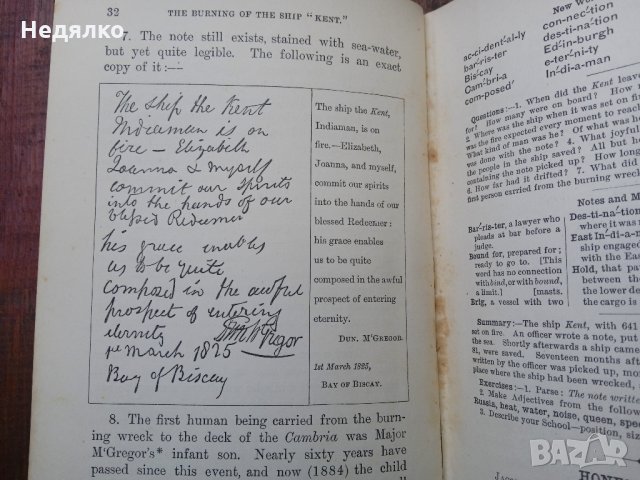 Недялко
32 THE BURNING OF THE SHIP "KENT."
7. The note still exists, stained with sea-water,
but yet quite legible. The following is an exact
copy of it:—
The ship the Kent
Indiaman is on
fire — Elizabeth
Joanna & myself
commit our spirits
into the hands of our
blessed Redeemer
his grace enables
us to be quite
composed in the awful
prospect of entering
eternity
1st March 1825
Bay of Biscay
The ship the Kent,
Indiaman, is on
fire.—Elizabeth,
Joanna, and myself,
commit our spirits
into the hands of our
blessed Redeemer:
his grace enables
us to be quite
composed in the awful
prospect of entering
eternity.
DUN. M'GREGOR.
1st March 1825,
BAY OF BISCAY.
8. The first human being carried from the burn-
ing wreck to the deck of the Cambria was Major
M'Gregor's* infant son. Nearly sixty years have
passed since this event, and now (1884) the child
New Wor
ac-ci-dent´al-ly
bar´ris-ter
Bis´cay
Cam´bri-a
com-posed´
con-nec´tion
des-ti-na´tion
Ed´in-burgh
e-ter´ni-ty
In´di-a-man
Questions:—1. When did the Kent leave
? How many were on board? How
2. Where was the ship when it was set on fi
was the fire expected every moment to reach
What kind of man was he? Of what was h
was done with the note? 4. What joyfu
the people in the ship saved? All but ho
containing the note picked up? How long
6. How far had it drifted? 7. What di
first person carried from the burning wreck
Notes and M
Bar´ris-ter, a lawyer who
pleads at bar before a
judge.
Bound for, prepared for;
ready to go. [This
word has no connection
with bind, or with bound,
a limit.]
Brig, a vessel with two
masts.
Des-ti-na´tion
East In´di-a-m
ship engaged
with the East
Hold, that pa
between the
der deck, in
the cargo is
Summary:—The ship Kent, with 641
set on fire. An officer wrote a note, put
the sea. Shortly afterwards a ship cam
81, were saved. Seventeen months after
by the officer was picked up, more
place where the ship had been wrecked,
Exercises:—1. Parse: The note writte
2. Make Adjectives from the following
Russia, heat, water, noise, queen, spee
3. Describe your School—position, siz
HONE
BAZAR.BG